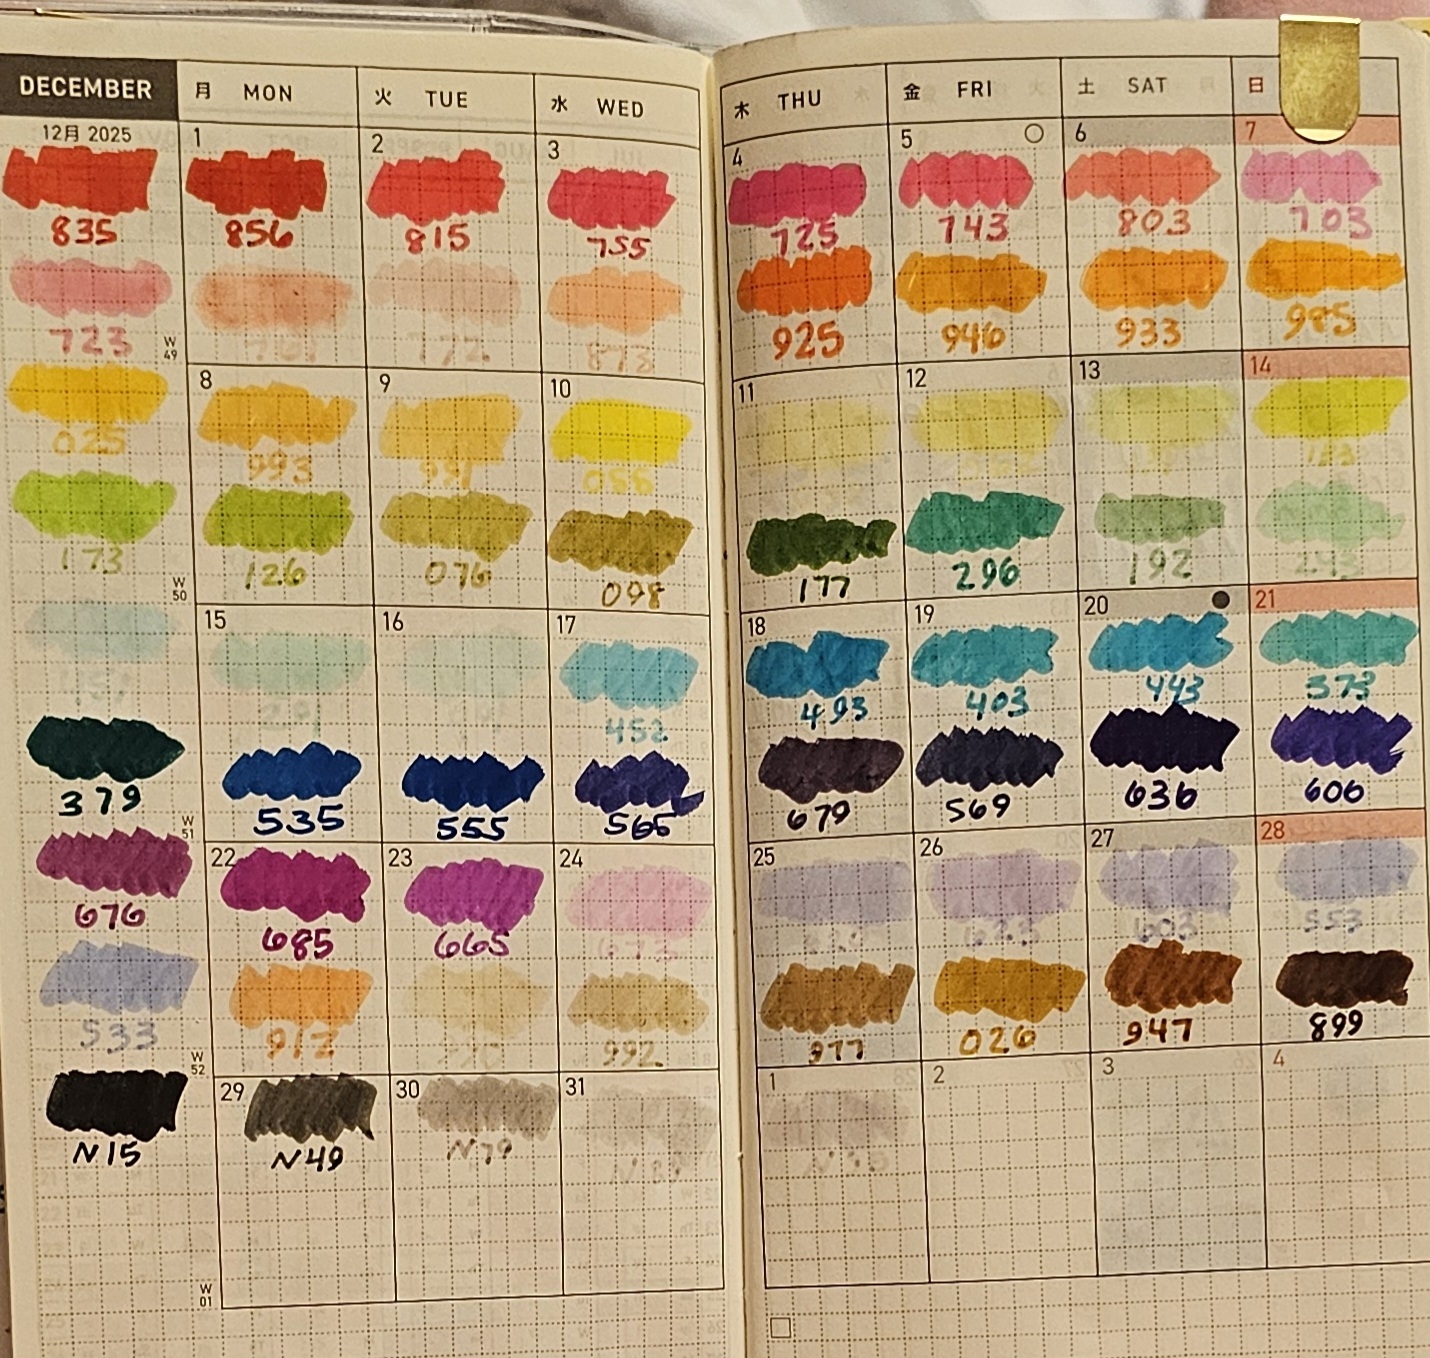 DECEMBER 月 MON 火 TUE 水 WED 木 THU 金 FRI 土 SAT 日
12月 2025 1 2 3 4 5 6 7
835 856 815 755 725 743 803 703
723 761 772 873 925 946 933 985
W 49
8 9 10 11 12 13 14
025 993 991 055 133
173 126 076 098 177 296 192 243
W 50
15 16 17 18 19 20 21
451 452 493 403 443 373
379 535 555 565 679 569 636 606
W 51
22 23 24 25 26 27 28
676 685 665 673 623 603 553
533 912 990 992 977 026 947 899
W 52
29 30 31 1 2 3 4
N15 N49 N79 N89 N95
W 01